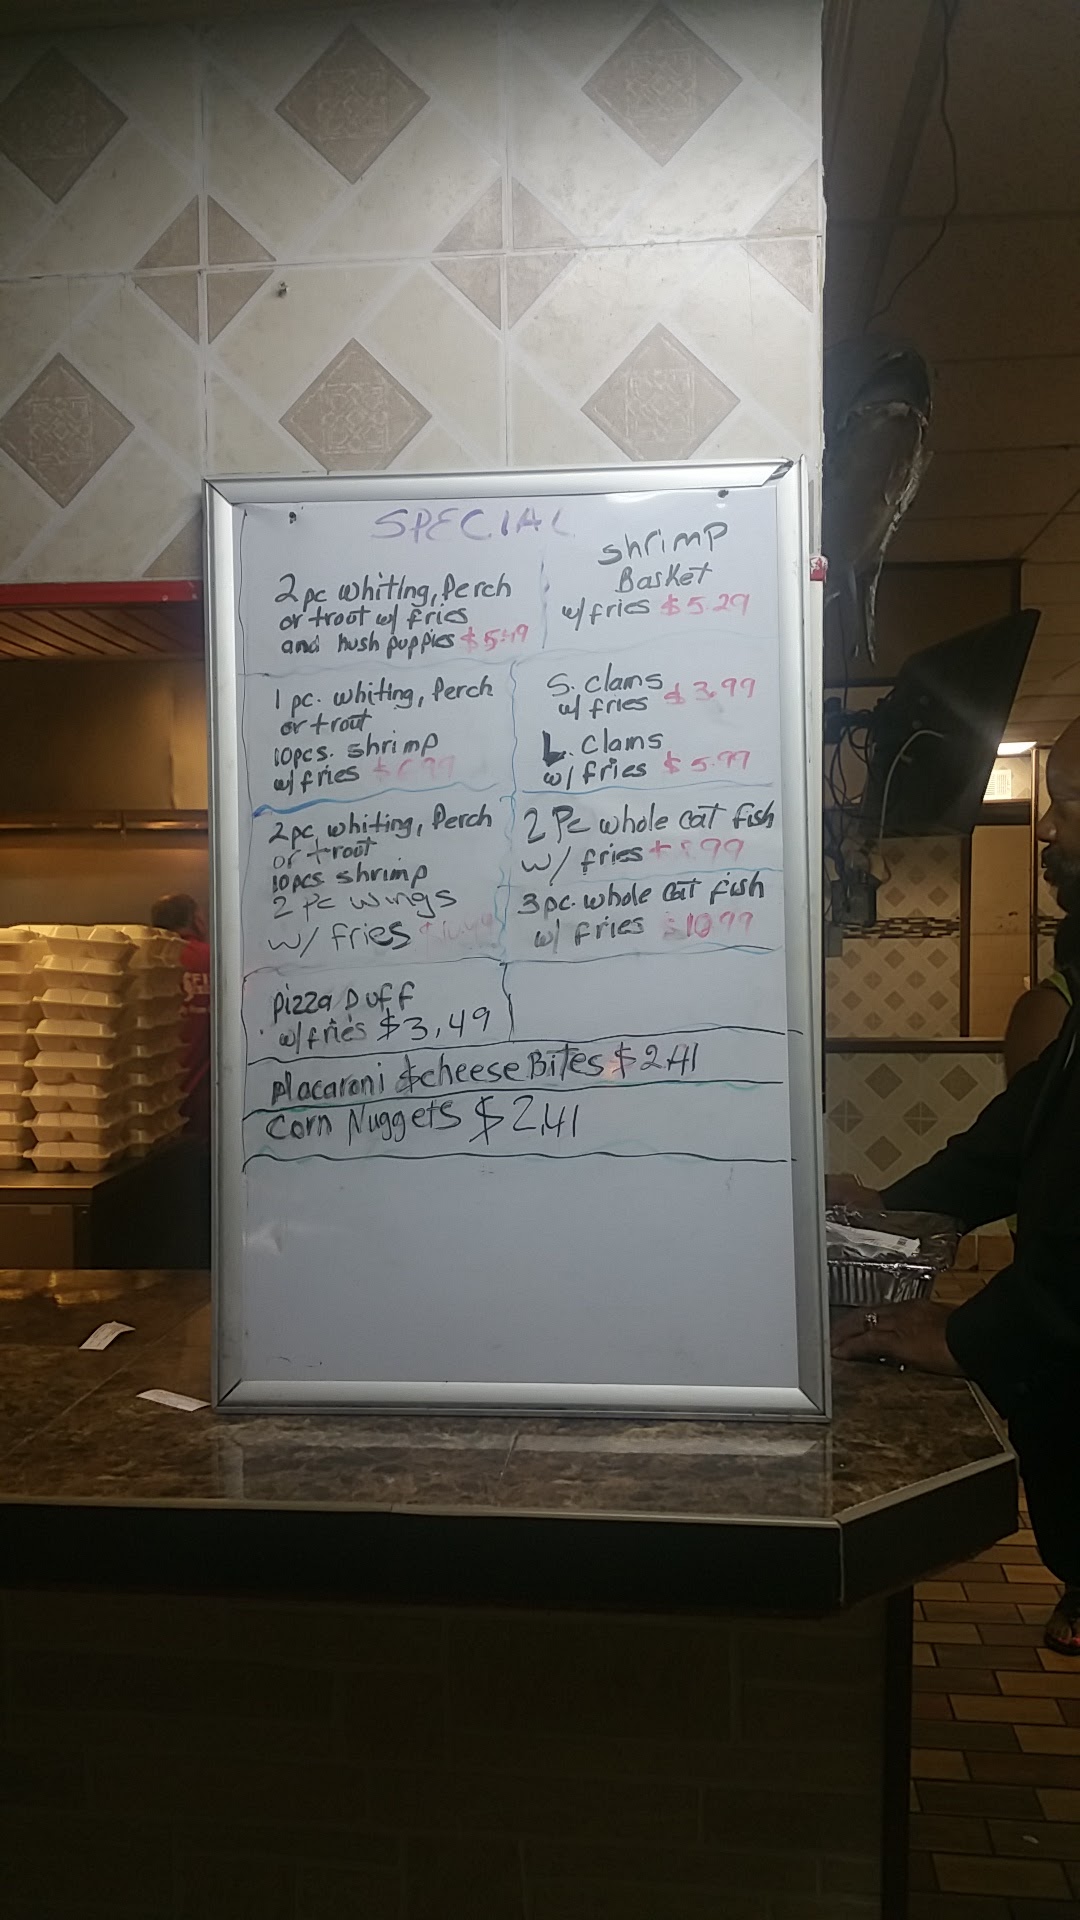 SPECIAL
2 pc whiting, Perch
or trout w/ fries
and hush puppies $5.49
shrimp
Basket
w/fries $5.29
1 pc. whiting, Perch
or trout
10pcs. shrimp
w/fries
S. clams
w/ fries $3.99
L. clams
w/ fries $5.99
2pc, whiting, Perch
or trout
10pcs shrimp
2 Pc wings
w/ fries
2 Pc whole cat fish
w/ fries
3pc. whole cat fish
w/ fries $10.99
pizza puff
w/fries $3.49
Macaroni &cheese Bites $2.41
Corn Nuggets $2.41